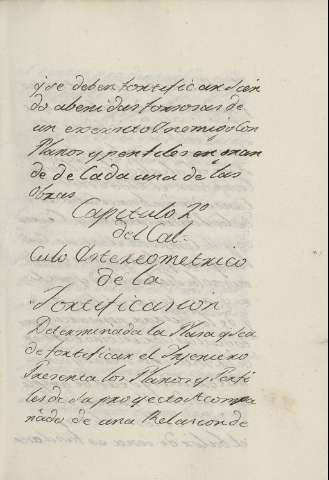 que deben fortificar sien
do abenidas forsosas de
un exercito Enemigo con
Planos y perfiles en gran
de de Cada una de las
obras
Capitulo 2º
del Cal-
culo Estereometrico
de la
Fortificacion
Determinada la Plaza q. sea
de fortificar el Ingeniero
Presenta los Planos y Perfi
les de su proyecto Acompa
ñado de una Relacion de